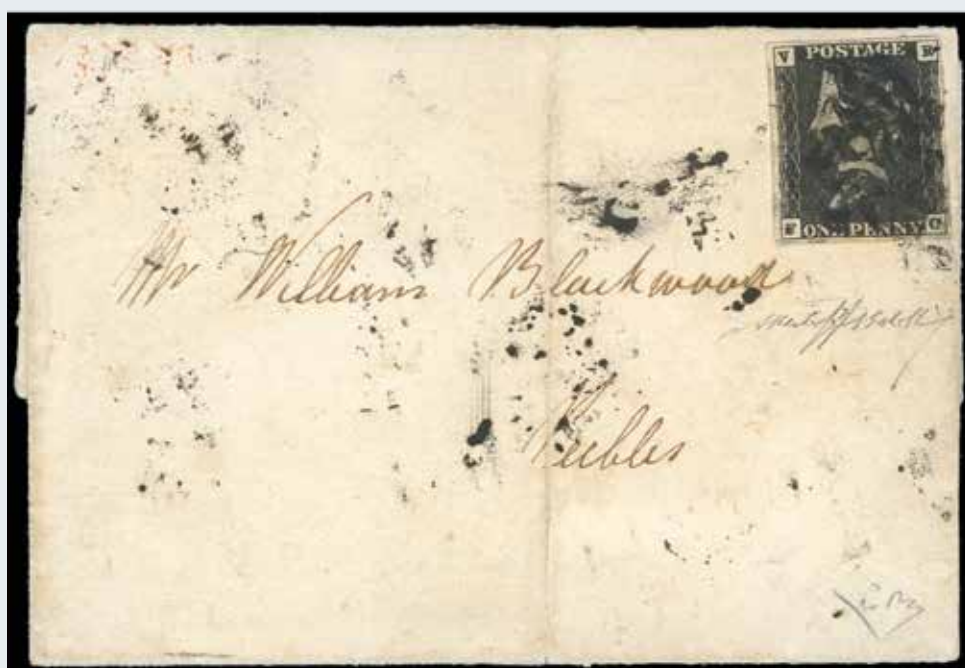 V POSTAGE R
F ONE PENNY C
Mr William Blackwood
Peebles